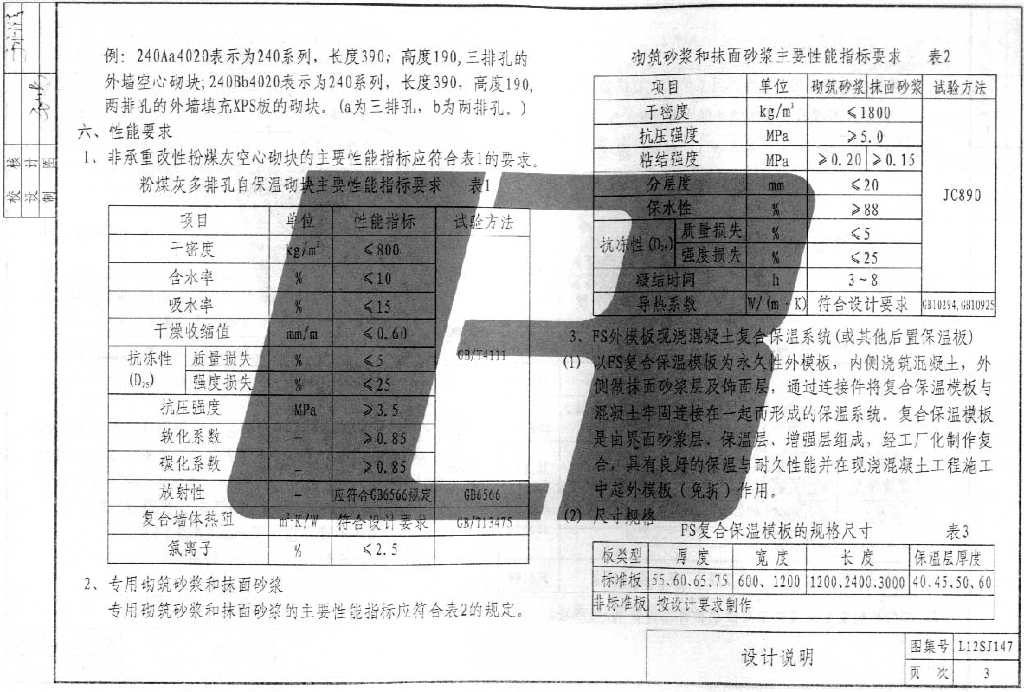 例：240Aa4020表示为240系列，长度390；高度190,三排孔的
外墙空心砌块;240Bb4020表示为240系列，长度390，高度190,
两排孔的外墙填充XPS板的砌块。（a为三排孔，b为两排孔。）
六、性能要求
1、非承重改性粉煤灰空心砌块的主要性能指标应符合表1的要求。
粉煤灰多排孔自保温砌块主要性能指标要求 表1
项目 单位 性能指标 试验方法
干密度 kg/m³ ≤800
含水率 % ≤10
吸水率 % ≤15
干燥收缩值 mm/m ≤0.60
GB/T4111
抗冻性 (D₂₅) 质量损失 % ≤5
强度损失 % ≤25
抗压强度 MPa ≥3.5
软化系数 — ≥0.85
碳化系数 — ≥0.85
放射性 — 应符合GB6566规定 GB6566
复合墙体热阻 m²·K/W 符合设计要求 GB/T13475
氯离子 % ≤2.5
2、专用砌筑砂浆和抹面砂浆
专用砌筑砂浆和抹面砂浆的主要性能指标应符合表2的规定。
砌筑砂浆和抹面砂浆主要性能指标要求 表2
项目 单位 砌筑砂浆 抹面砂浆 试验方法
干密度 kg/m³ ≤1800
抗压强度 MPa ≥5.0
粘结强度 MPa ≥0.20 ≥0.15
分层度 mm ≤20
JC890
保水性 % ≥88
抗冻性(D₂₅) 质量损失 % ≤5
强度损失 % ≤25
凝结时间 h 3~8
导热系数 W/(m·K) 符合设计要求 GB10294,GB10925
3、FS外模板现浇混凝土复合保温系统(或其他后置保温板)
(1) 以FS复合保温模板为永久性外模板，内侧浇筑混凝土，外
侧做抹面砂浆层及饰面层，通过连接件将复合保温模板与
混凝土牢固连接在一起而形成的保温系统。复合保温模板
是由界面砂浆层、保温层、增强层组成，经工厂化制作复
合，具有良好的保温与耐久性能并在现浇混凝土工程施工
中起外模板（免拆）作用。
(2) 尺寸规格
FS复合保温模板的规格尺寸 表3
板类型 厚度 宽度 长度 保温层厚度
标准板 55.60.65.75 600、1200 1200.2400.3000 40.45.50、60
非标准板 按设计要求制作
设计说明
图集号 L12SJ147
页次 3
校核
设计
制图